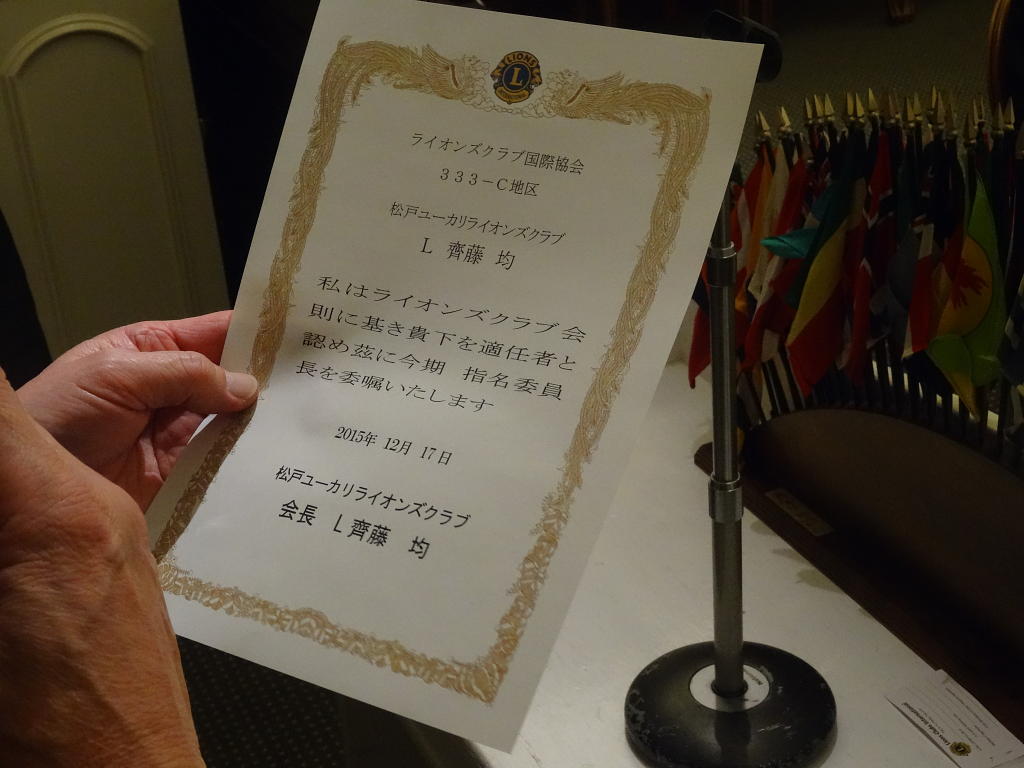 LIONS
L
ライオンズクラブ国際協会
３３３－Ｃ地区
松戸ユーカリライオンズクラブ
Ｌ 齊藤 均
私はライオンズクラブ会
則に基き貴下を適任者と
認め茲に今期 指名委員
長を委嘱いたします
2015年 12月 17日
松戸ユーカリライオンズクラブ
会長 Ｌ齊藤 均
Lions Clubs International